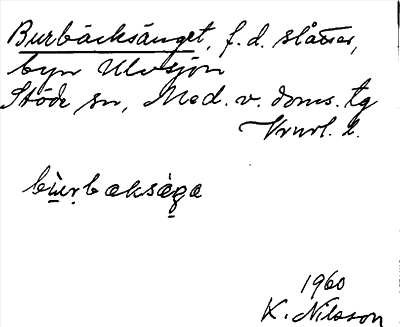 Burbäcksänget, f. d. slåtter,
byn Ulvsjön
Stöde sn, Med. v. doms. tg
2.
bu̠rbaksäga
1960
K. Nilsson